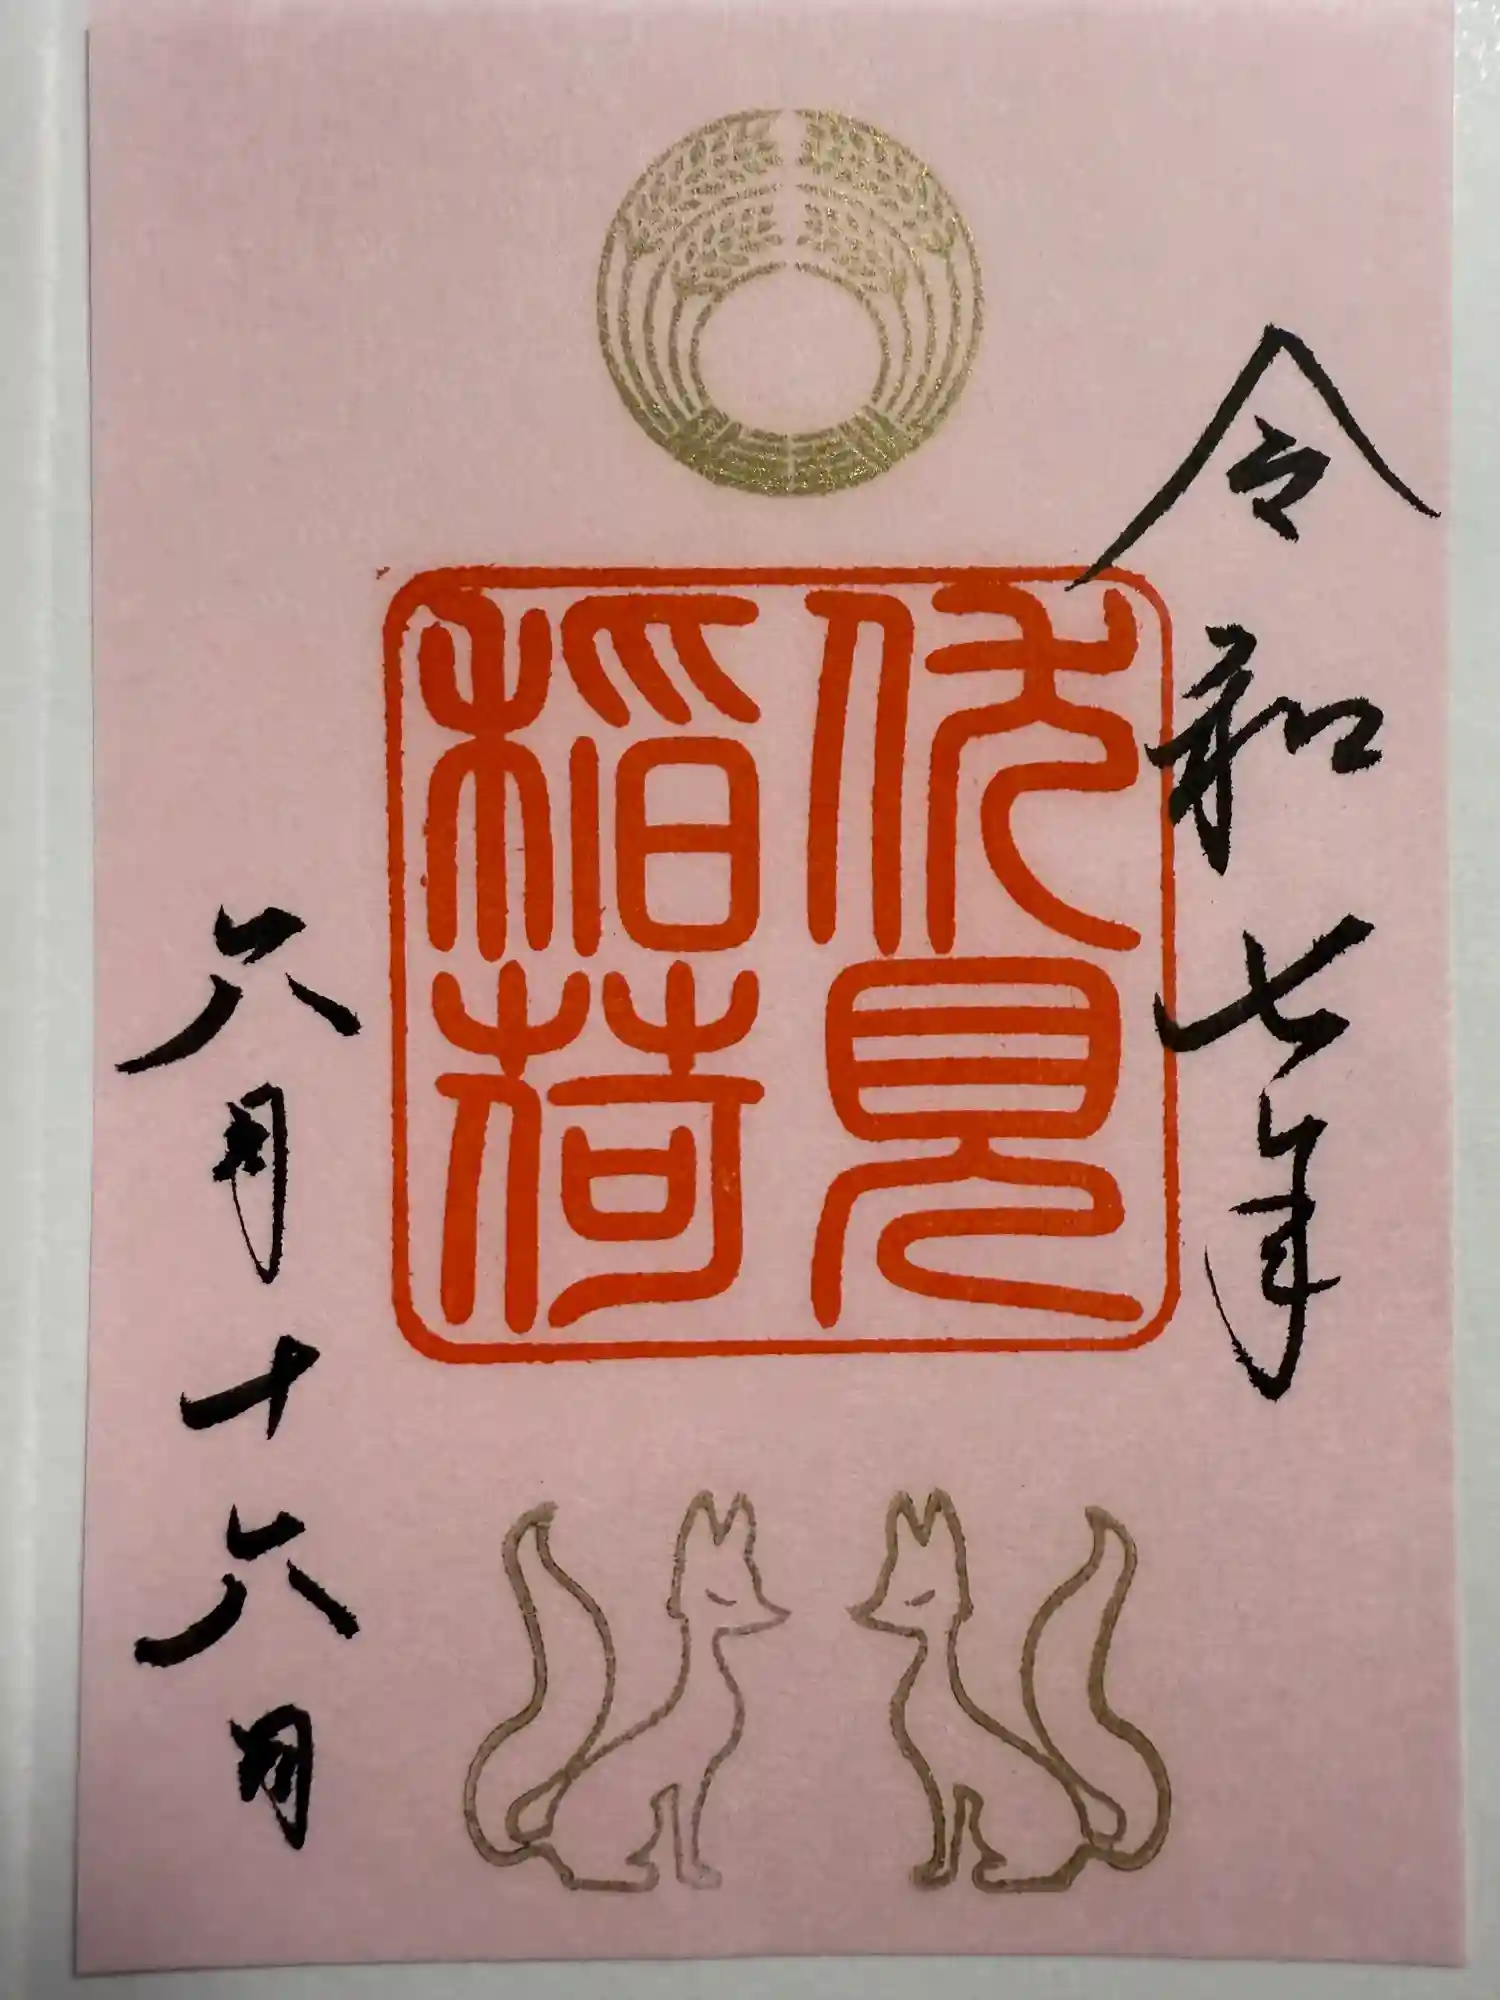 令和七年
伏見
稲荷
六月十六日